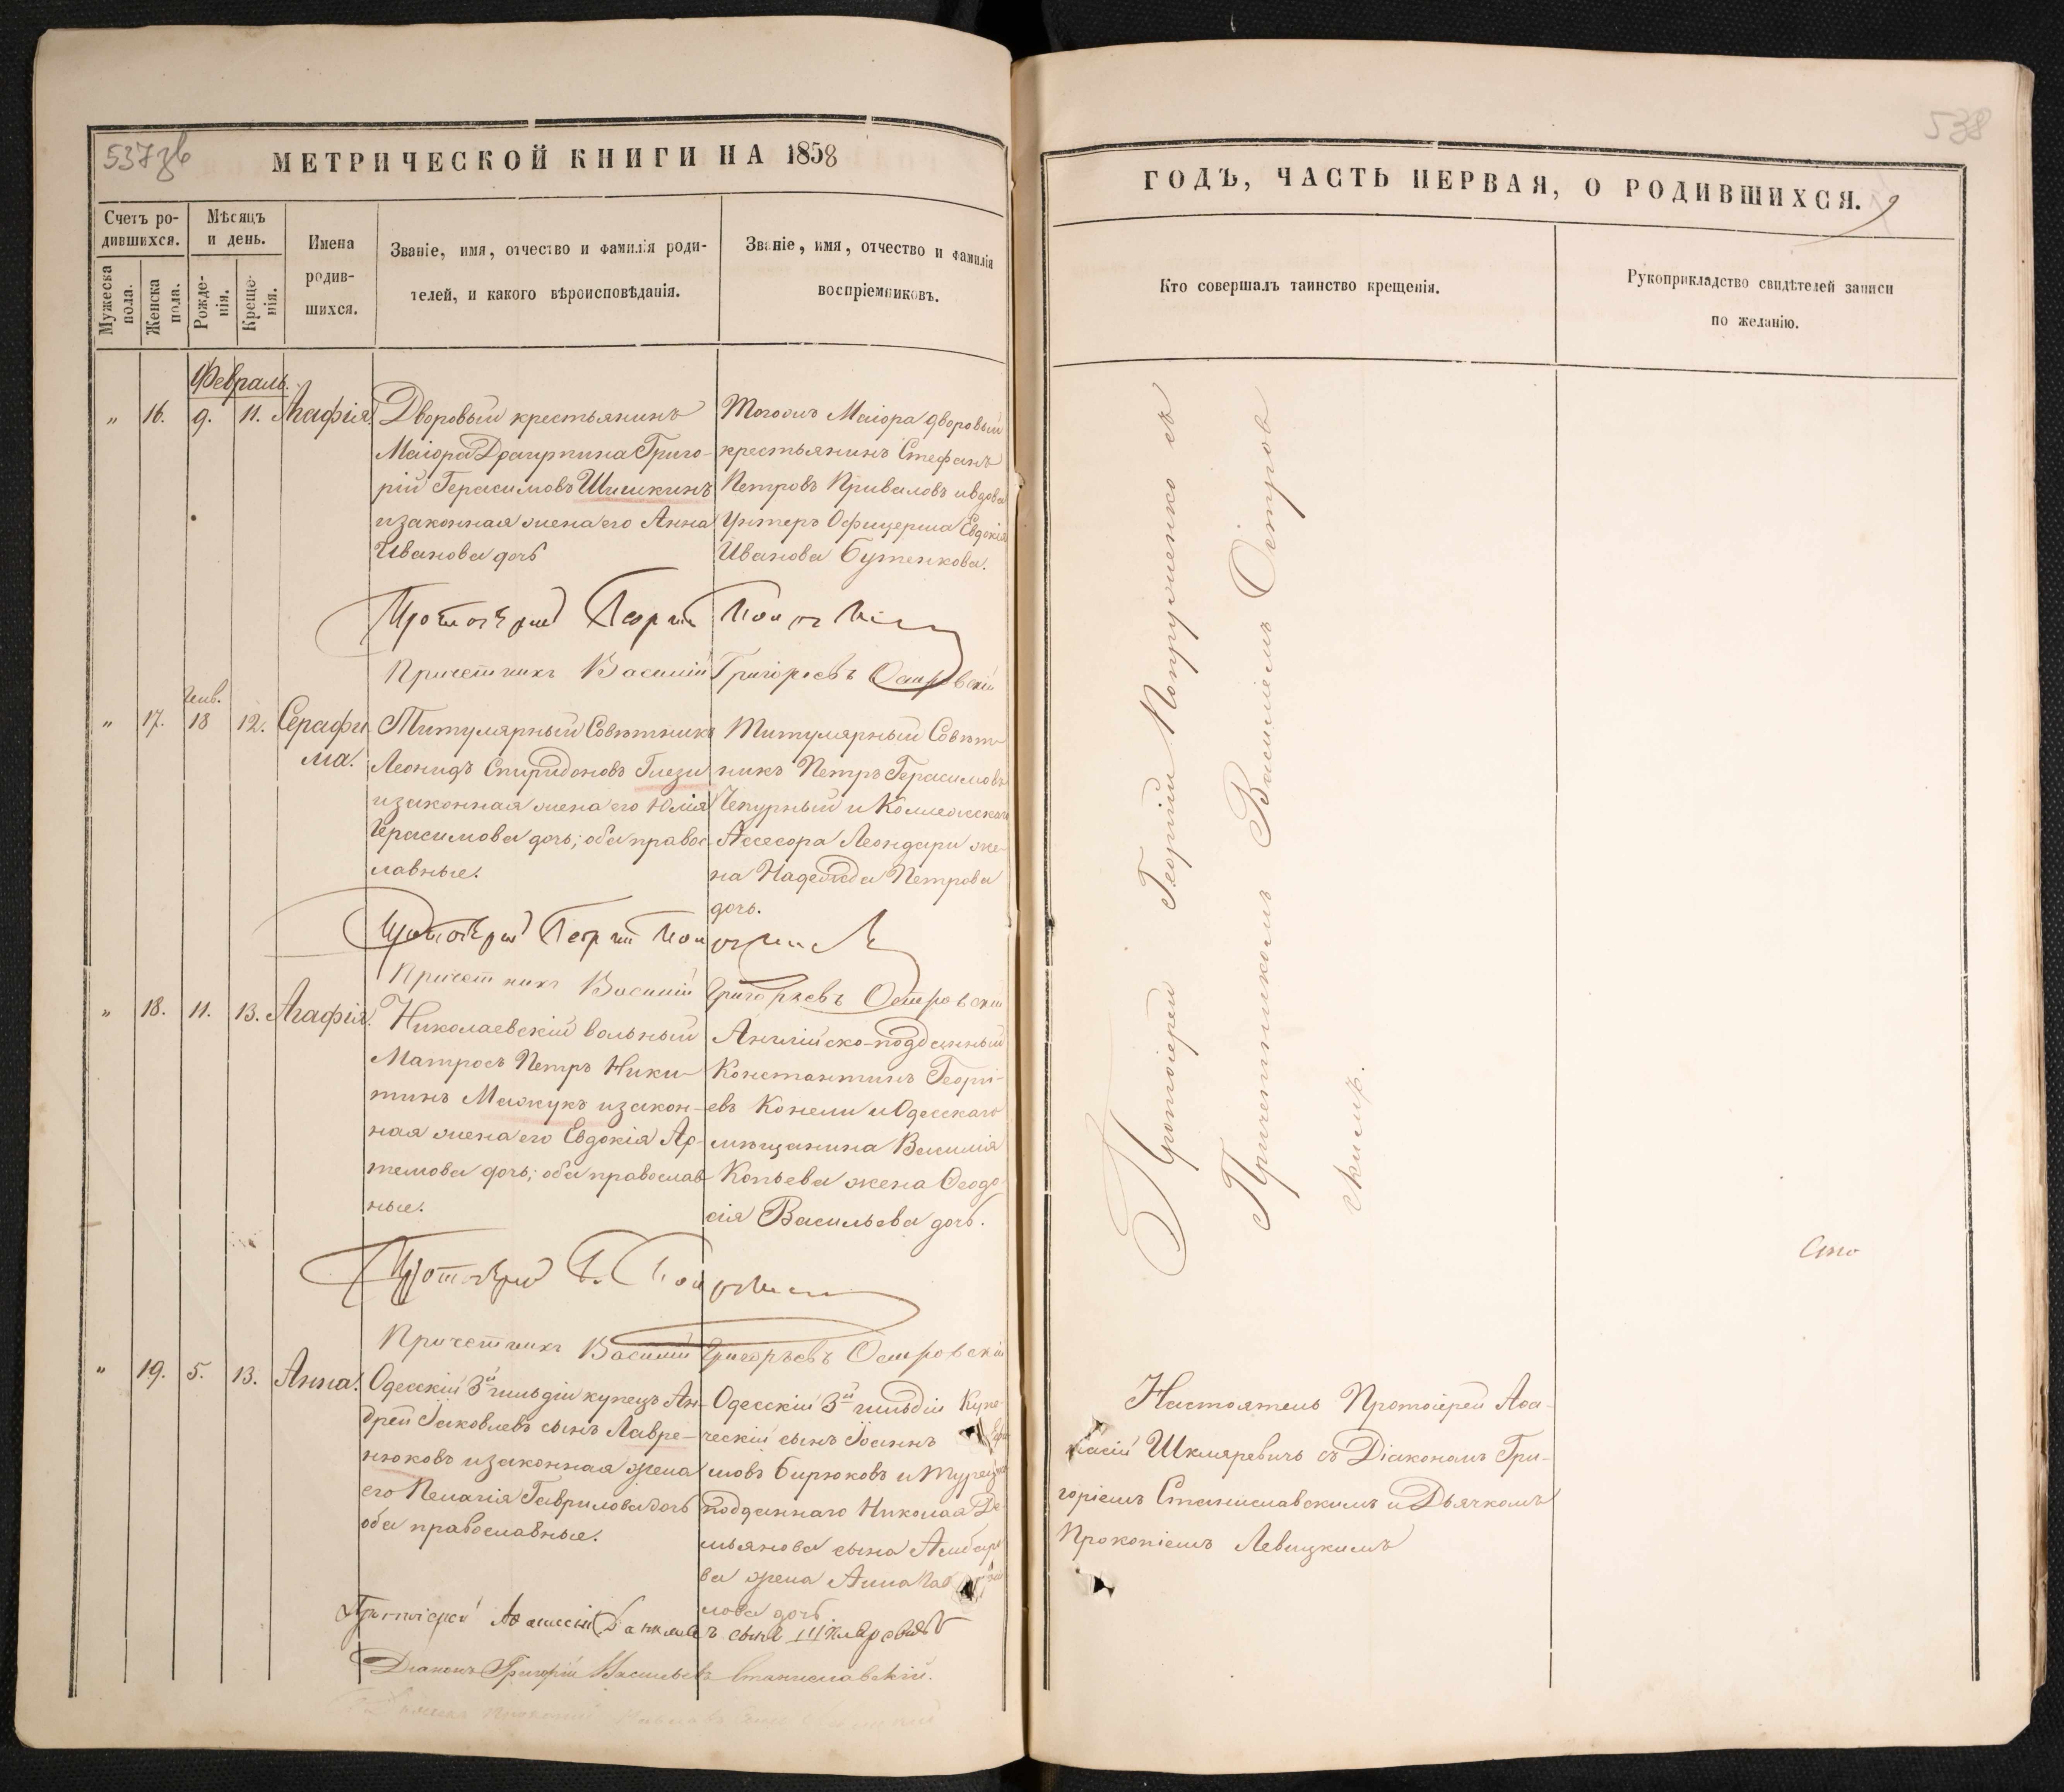 537 зв
МЕТРИЧЕСКОЙ КНИГИ НА 1858
Счетъ ро-
дившихся.
Мужеска пола.
Женска пола.
Мѣсяцъ
и день.
Рожде-
нія.
Креще-
нія.
Имена
родив-
шихся.
Званіе, имя, отчество и фамилія роди-
телей, и какого вѣроисповѣданія.
Званіе, имя, отчество и фамилія
воспріемниковъ.
Февраль.
" 16. 9. 11. Агафія.
Дворовый крестьянинъ
Маіора Драгутина Григо-
рій Герасимовъ Шишкинъ
и законная жена его Анна
Иванова дочь
Тогожъ Маіора дворовый
крестьянинъ Стефанъ
Петровъ Приваловъ и вдова
Унтеръ Офицерша Евдокія
Иванова Бутенкова.
Протоіерей Георгій
Причетникъ Василій Григорьевъ Островскій
Янв.
" 17. 18 12. Серафи
ма.
Титулярный Совѣтникъ
Леонидъ Спиридоновъ Глези
и законная жена его Юлія
Герасимова дочь; оба правос
лавные.
Титулярный Совѣт-
никъ Петръ Герасимовъ
Чепурный и Коллежскаго
Асесора Леондари же-
на Надежда Петрова
дочь.
Протоіерей Георгій
Причетникъ Василій Григорьевъ Островскій
" 18. 11. 13. Агафія.
Николаевскій вольный
Матросъ Петръ Ники-
тинъ Мажукъ и закон-
ная жена его Евдокія Ар-
темова дочь; оба православ
ные.
Англійско-подданный
Константинъ Георгі-
евъ Конели и Одесскаго
мѣщанина Василія
Копьева жена Ѳеодо
сія Васильева дочь.
Протоіерей Г.
Причетникъ Василій Григорьевъ Островскій
" 19. 5. 13. Анна.
Одесскій 3й гильдіи купецъ Ан-
дрей Іаковлевъ сынъ Лавре-
нюковъ и законная жена
его Пелагія Гаврилова дочь
оба православные.
Одесскій 3й гильдіи Купе-
ческій сынъ Іоаннъ
мовъ Бирюковъ и Турецко
подданнаго Николая Де
мьянова сына
ва жена Анна
лова дочь
Протоіерей Аѳанасій сынъ Шкляревичъ
Діаконъ Григорій Васильевъ Станиславскій.
538
ГОДЪ, ЧАСТЬ ПЕРВАЯ, О РОДИВШИХСЯ.
9
Кто совершалъ таинство крещенія.
Рукоприкладство свидѣтелей записи
по желанію.
Протоіерей Георгій Попруженко съ
Причетникомъ Василіемъ Остров
скимъ.
Настоятель Протоіерей Аѳа-
насій Шкляревичъ съ Діакономъ Гри-
горіемъ Станиславскимъ и Дьячкомъ
Прокопіемъ Левицкимъ